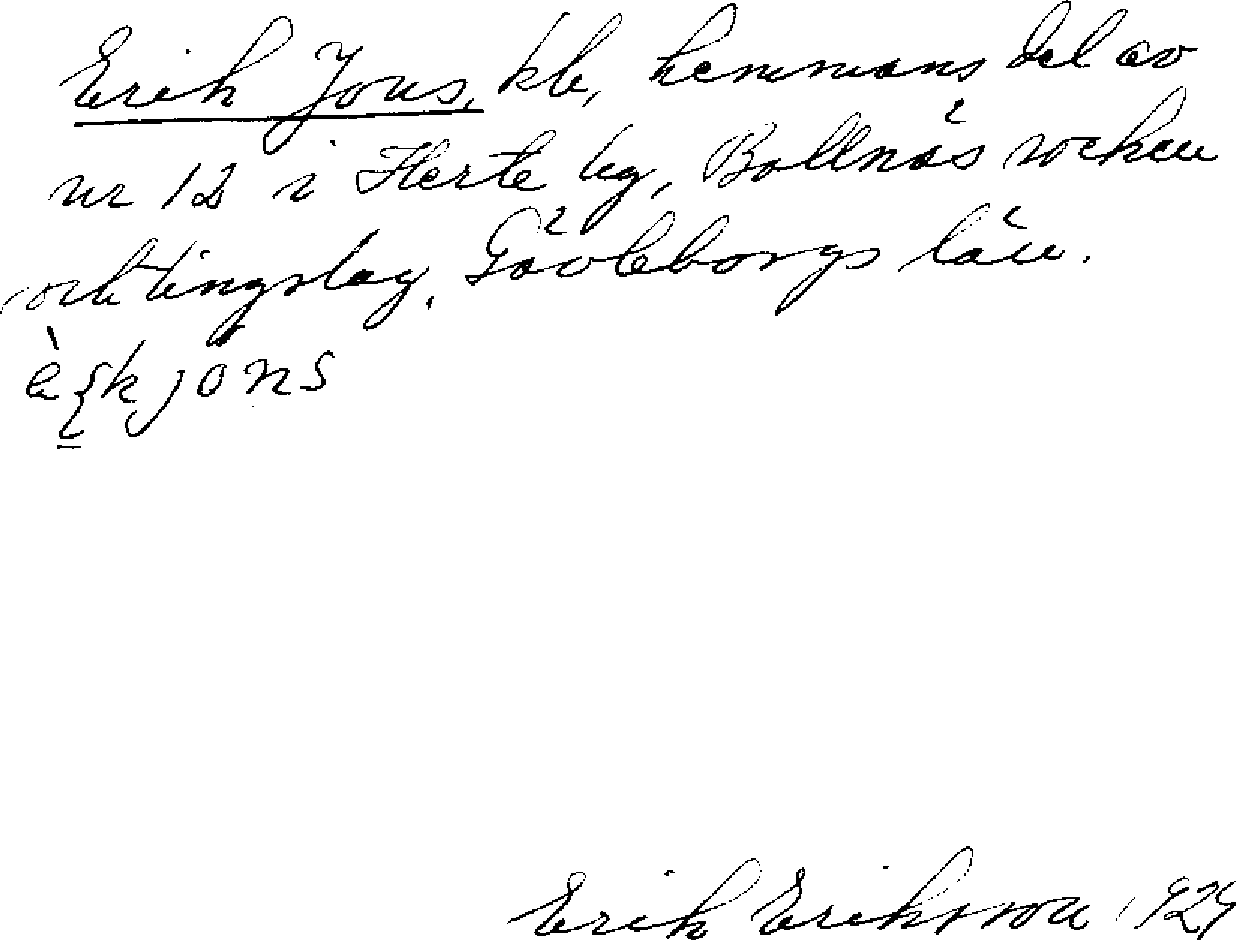 Erik Jons, kb, hemmans del av
nr 12 i Herte by, Bollnäs socken
och tingslag, Gävleborgs län.
jons
Erik Eriksson 1924